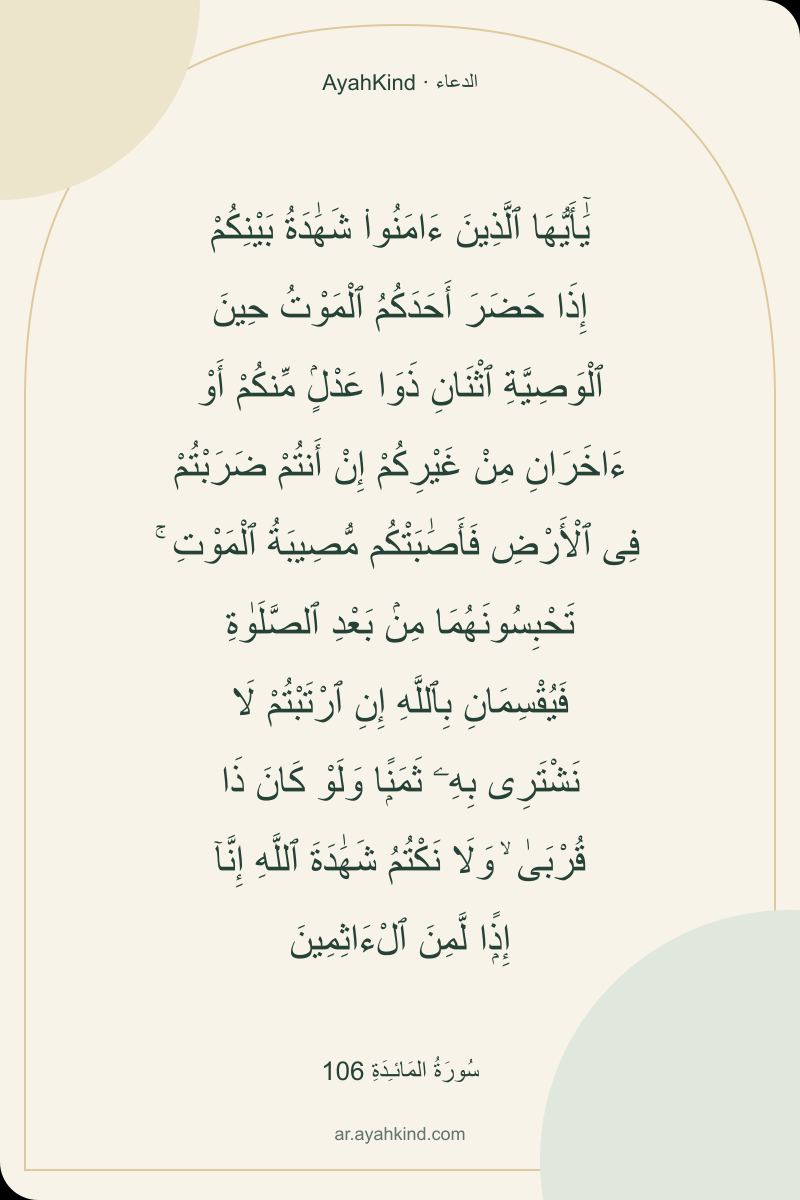 AyahKind · الدعاء
يَٰٓأَيُّهَا ٱلَّذِينَ ءَامَنُوا۟ شَهَٰدَةُ بَيْنِكُمْ
إِذَا حَضَرَ أَحَدَكُمُ ٱلْمَوْتُ حِينَ
ٱلْوَصِيَّةِ ٱثْنَانِ ذَوَا عَدْلٍۢ مِّنكُمْ أَوْ
ءَاخَرَانِ مِنْ غَيْرِكُمْ إِنْ أَنتُمْ ضَرَبْتُمْ
فِى ٱلْأَرْضِ فَأَصَٰبَتْكُم مُّصِيبَةُ ٱلْمَوْتِ ۚ
تَحْبِسُونَهُمَا مِنۢ بَعْدِ ٱلصَّلَوٰةِ
فَيُقْسِمَانِ بِٱللَّهِ إِنِ ٱرْتَبْتُمْ لَا
نَشْتَرِى بِهِۦ ثَمَنًۭا وَلَوْ كَانَ ذَا
قُرْبَىٰ ۙ وَلَا نَكْتُمُ شَهَٰدَةَ ٱللَّهِ إِنَّآ
إِذًۭا لَّمِنَ ٱلْءَاثِمِينَ
سُورَةُ المَائـِدَةِ 106
ar.ayahkind.com